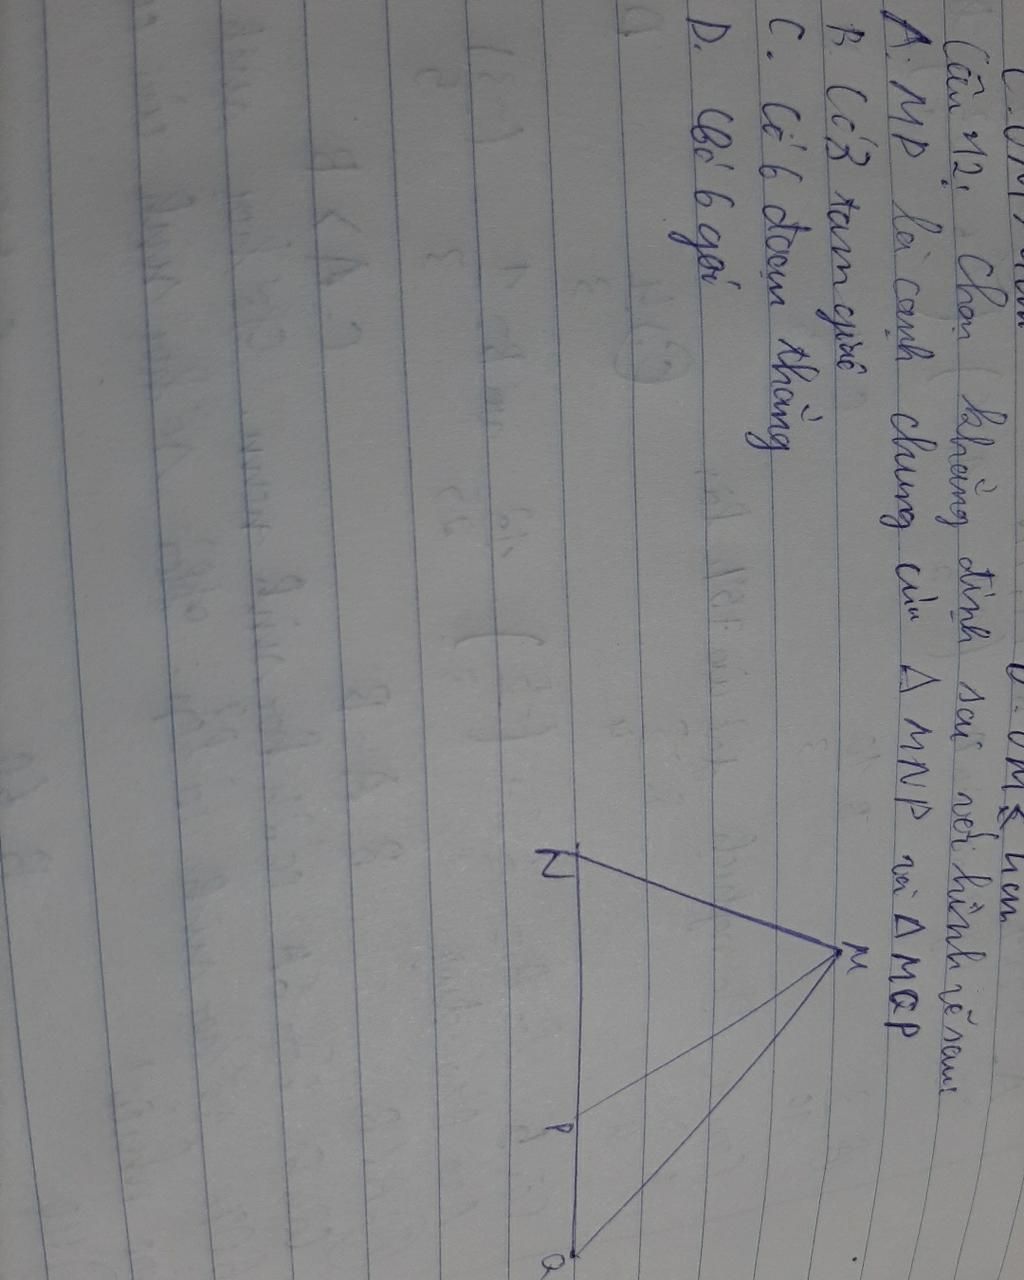 Câu 12. Chọn khẳng định sai với hình vẽ sau
A. MP là cạnh chung của Δ MNP và Δ MQP
B. Có 3 tam giác
C. Có 6 đoạn thẳng
D. Có 6 góc
M
N
P
Q